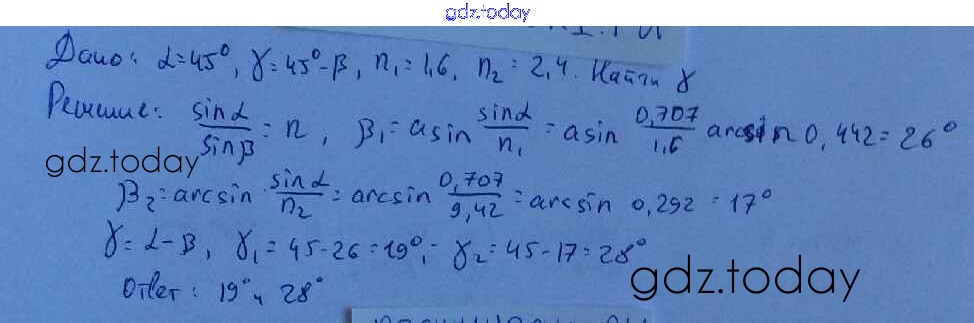 gdz.today
Дано: α=45°, γ=45°-β, n₁=1,6, n₂=2,4. Найти γ
Решение: sinα/sinβ = n, β₁=asin sinα/n₁ = asin 0,707/1,6 arcsin 0,442=26°
gdz.today
β₂=arcsin sinα/n₂ = arcsin 0,707/9,42 = arcsin 0,292 = 17°
γ=α-β, γ₁=45-26=19°; γ₂=45-17=28°
gdz.today
Ответ: 19° и 28°